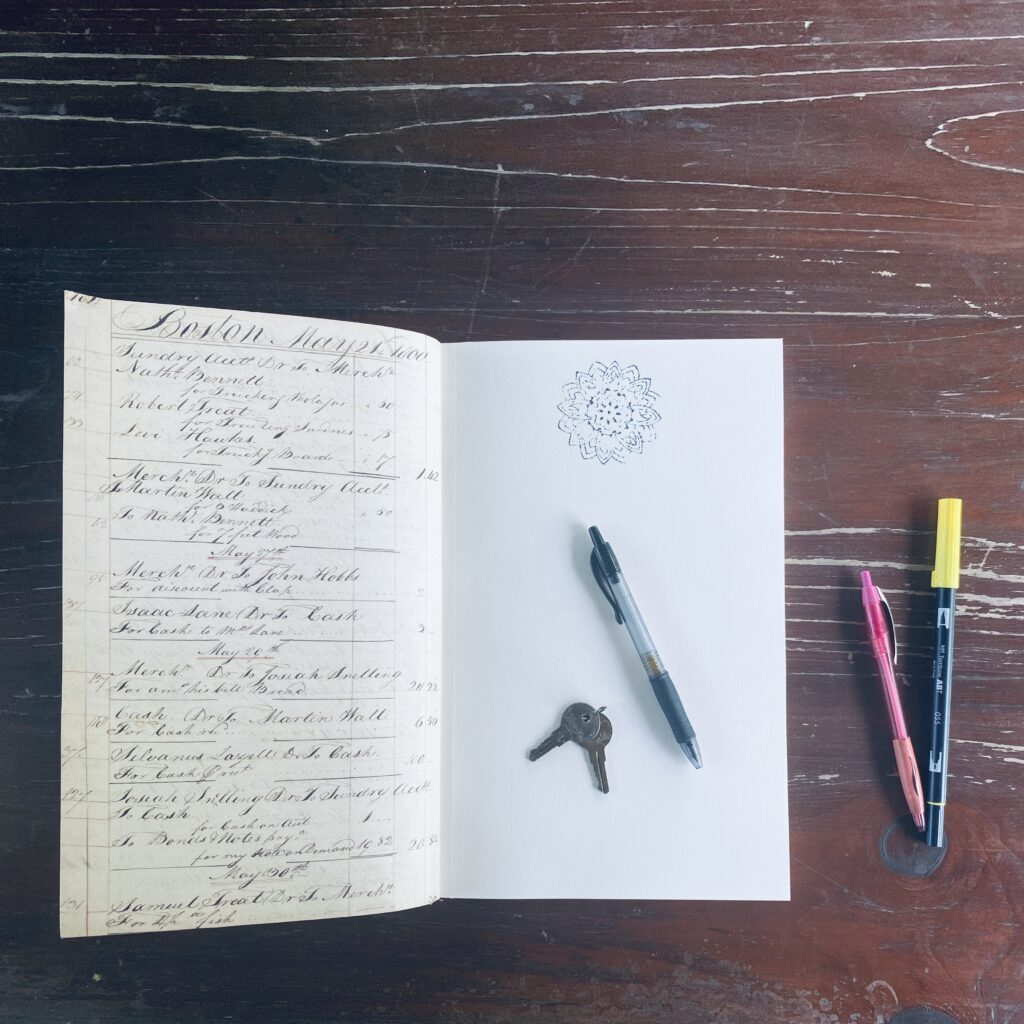 Boston May 21st 1800
Sundry Accts Dr To Merchse
Nathl Bennett
for Trucking Molasses .. 50
Robert Treat
for Trucking Sundries .. 75
Levi Hawkes
for Truckg Board .. 17
1.42
Merchse Dr To Sundry Accts
To Martin Walt
for
50
To Nathl Bennett
for 7 feet Wood
May 27th
Merchse Dr To John Hobbs
For discount with Clap
Isaac Lane Dr To Cash
For Cash to Mrs Lane
May 29th
Merchse Dr To Josiah Snelling
For amt his bill Bread
Cash Dr To Martin Walt
For Cash recd
6.50
Silvanus Dr To Cash
For Cash
Josiah Snelling Dr To Sundry Accts
To Cash
for Cash on Acct 1
To Bonds & Notes
for my Note on Demand 19.82 20.82
May 30th
Samuel Treat Dr To Merchse
For fish
Tombow ABT 055